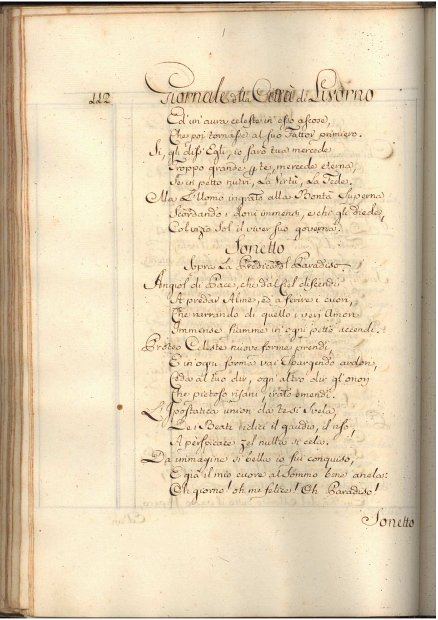 112 Giornale della Città di Livorno
Ed un'aura celeste in esso ascose,
Che poi tornasse al suo Fattor primiero.
Sì, gli diss' Egli, io sarò tua mercede
Troppo grande p te, mercede eterna,
Se in petto nutri, La Virtù, La Fede.
Ma L'Uomo ingrato alla Bontà Superna
Scordando i doni immensi, e chi gli diede,
Col vizio sol il viver suo governa.
Sonetto
Sopra La Predica del Paradiso.
Angiol di Pace, che dal Ciel discendi
A predar Alme, ed a ferire i cuori,
Che narrando di quello i veri Amori
Immense fiamme in ogni petto accendi.
Proteo Celeste nuove forme prendi,
E in ogni forma vai spargendo ardori,
Ceda al tuo dir, ogn' altro dir gl' onori
Che pietoso risani, irato emendi.
L'Ipostatica union da te si svela,
De i Beati ridici il gaudio, il riso,
A perspicace zel nulla si cela.
Da immagine si bella io fui conquiso,
E già il mio cuore al Sommo bene anela:
Oh giorno! oh me felice! Oh Paradiso!
Sonetto